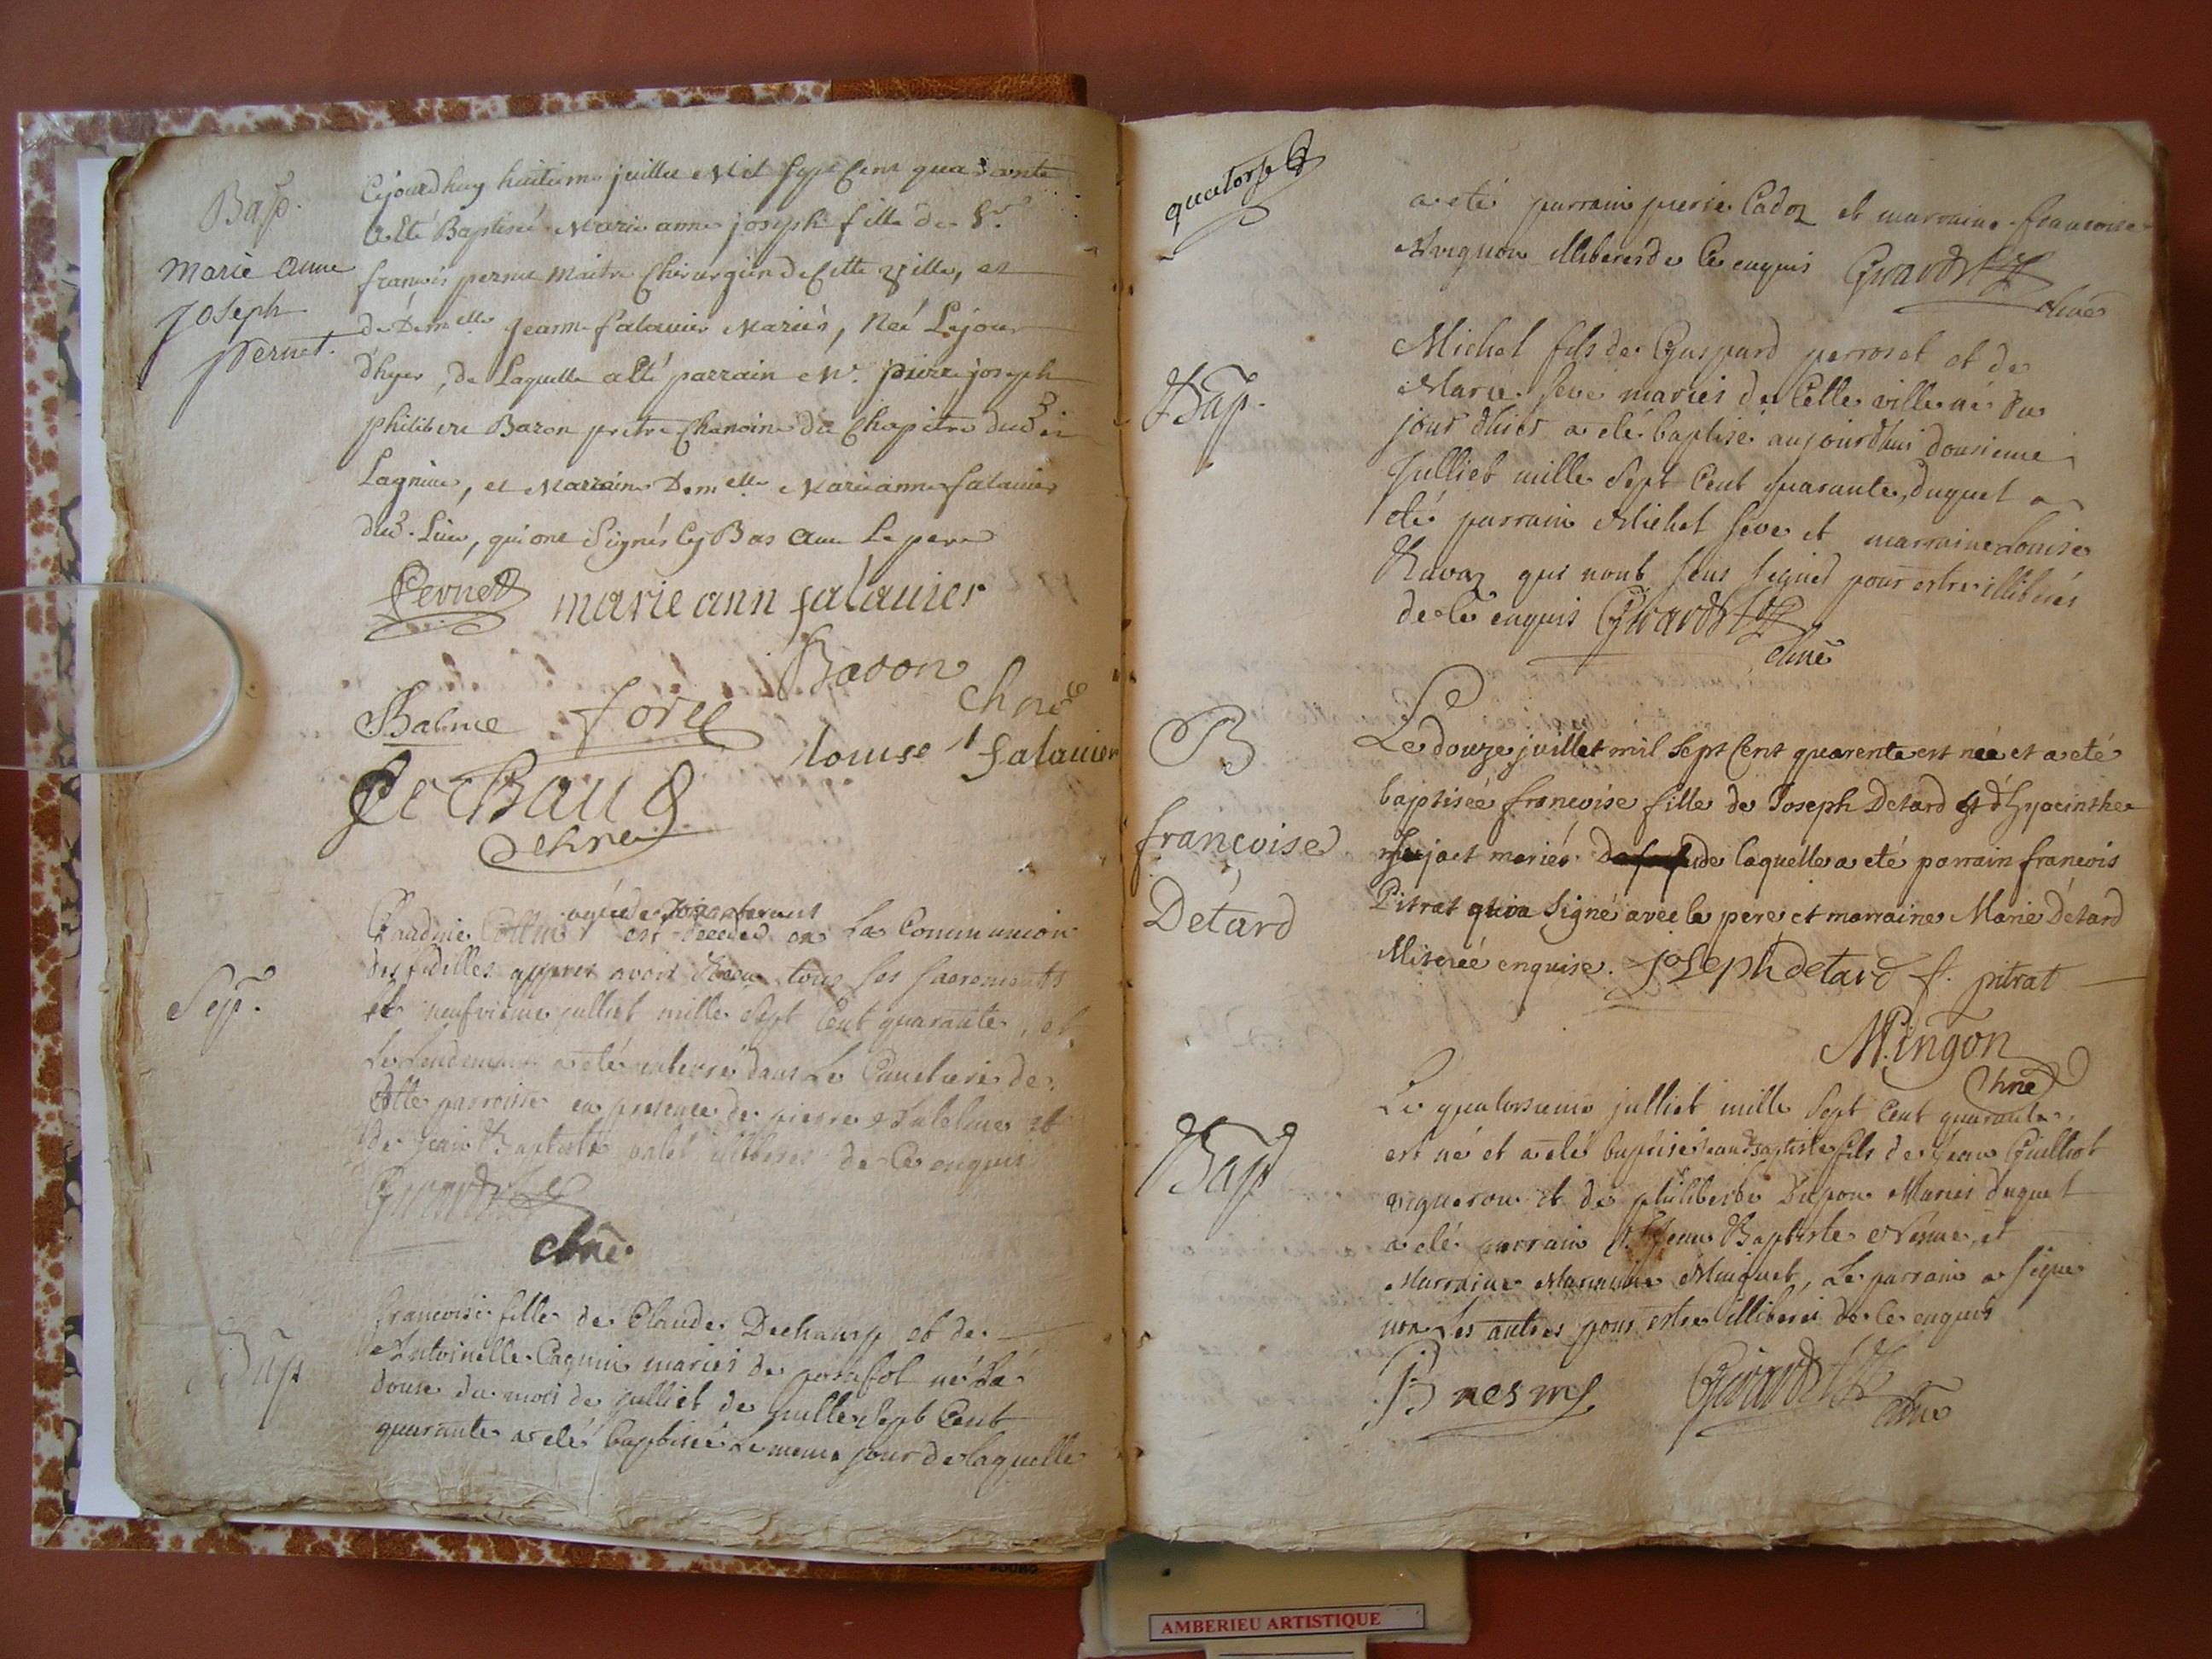 Bap.
Marie Anne
Joseph
Pernet.
Cejourdhuy huitieme juillet Mil Sept Cent quarante
a Eté Baptisé Marie anne joseph fille de Sr.
françois pernet Maitre Chirurgien de Cette ville, et
de Demelle jeanne falavier Mariés, Neé Lejour
d'hyer, de Laquelle a Eté parrain Mr. pierre joseph
philibert Baron prêtre Chanoine du Chapitre dud
Lagnieu, et Marraine Demelle Marianne falavier
dud. Lieu, qui ont Signés Cy Bas avec Le pere
Pernet marie ann falavier
Baron chne
Balme forel
louise falavier
chne
Sep.
Claudine est decedeé en La Communion
des fidelles appres avoir Receu tous Les sacrements
Le neufvieme julliet mille Sept Cent quarante, et
Le Lendemain a eté enterré dans Le Cimetiere de
Cette parroisse en presence de pierre et
de jean Baptiste valet illiteres de Ce enquis
Girardet
chne.
Bap
francoise fille de Claude Dechamp et de
Antoinette Cagnin mariés de posafol né Le
douze du mois de julliet de mille Sept Cent
quarante a eté baptiseé Le meme jour de laquelle
quatorse
a eté parrain pierre Cadoz et marraine francoise
illiteres de Ce enquis Girardet
chne
Bap.
Michel fils de Gaspard perroset et de
Marie Seve mariés de Cette ville né du
jour dhier a eté baptisé aujourdhui dousieme
Julliet mille Sept Cent quarante, duquel a
eté parrain Michel Seve et marraine Louise
Ravaz qui nont Sceu Signer pour estre illiterés
de Ce enquis Girardet
chne
B
françoise
Détard
Le
Le douze juillet mil Sept Cent quarente est née et a eté
baptisée françoise fille de Joseph Detard et d'hyacinthe
Jujat mariés de laquelle a eté parrain françois
Pitrat qui a Signé avec le pere et marraine Marie Détard
enquise. Joseph detard f. pitrat
M. ingon
chne
Bap
Le quatorsieme julliet mille Sept Cent quarante
est né et a eté baptisé jean Baptiste fils de jean Guilliot
vigneron et de philiberte Dupon Mariés duquel
a eté parrain Sr jean Baptiste Nesme, et
Marraine Marianne Minguet, Le parrain a signe
non Les autres pour estre illiteré de Ce enquis
JB nesme Girardet
chne
AMBERIEU ARTISTIQUE